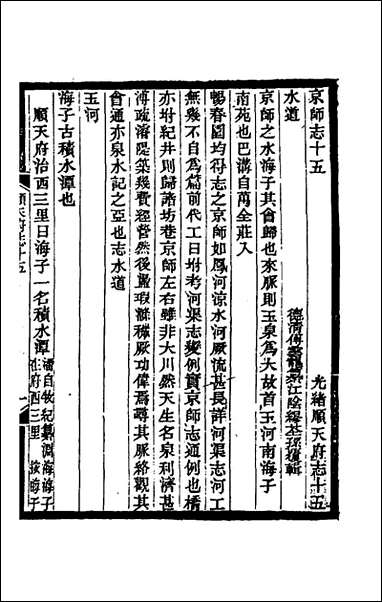 光緒順天府志十五
京師志十五
德清傅雲龍纂江陰繆荃孫覆輯
水道
京師之水海子其會歸也來脈則玉泉爲大故首玉河南海子
南苑也巴溝自萬全莊入
暢春園均得志之京師如鳳河涼水河厥流甚長詳河渠志河工
無幾不自爲篇前代工日坿考河渠志變例實京師志通例也橋
亦坿紀井則歸諸坊巷京師左右雖非大川然天生名泉利濟甚
溥疏濬隄築幾費經營然後置瑕滌穢厥功偉焉尋其脈絡觀其
會通亦泉水記之亞也志水道
玉河
海子古積水潭也
順天府治西三里日海子一名積水潭潘自牧紀纂淵海海子
在府西三里 按海子
順天府志十五
一